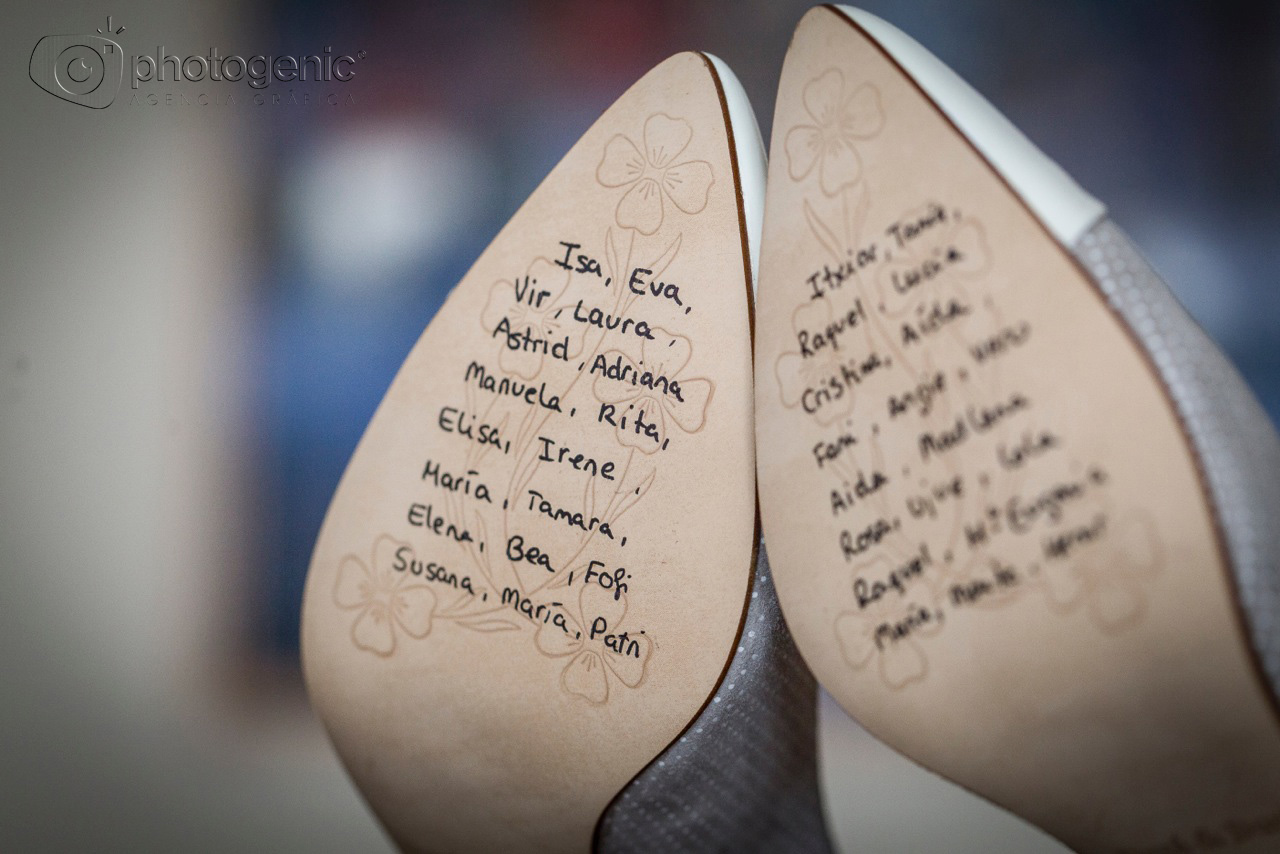 photogenic
AGENCIA GRÁFICA
Isa, Eva,
Vir, Laura,
Astrid, Adriana
Manuela, Rita,
Elisa, Irene,
María, Tamara,
Elena, Bea, Fofi
Susana, María, Patri
Itxiar, Tania,
Raquel, Lucía
Cristina, Aida,
Angie,
Aida,
Rosa, Lola
Raquel, Mª Eugenia
María,